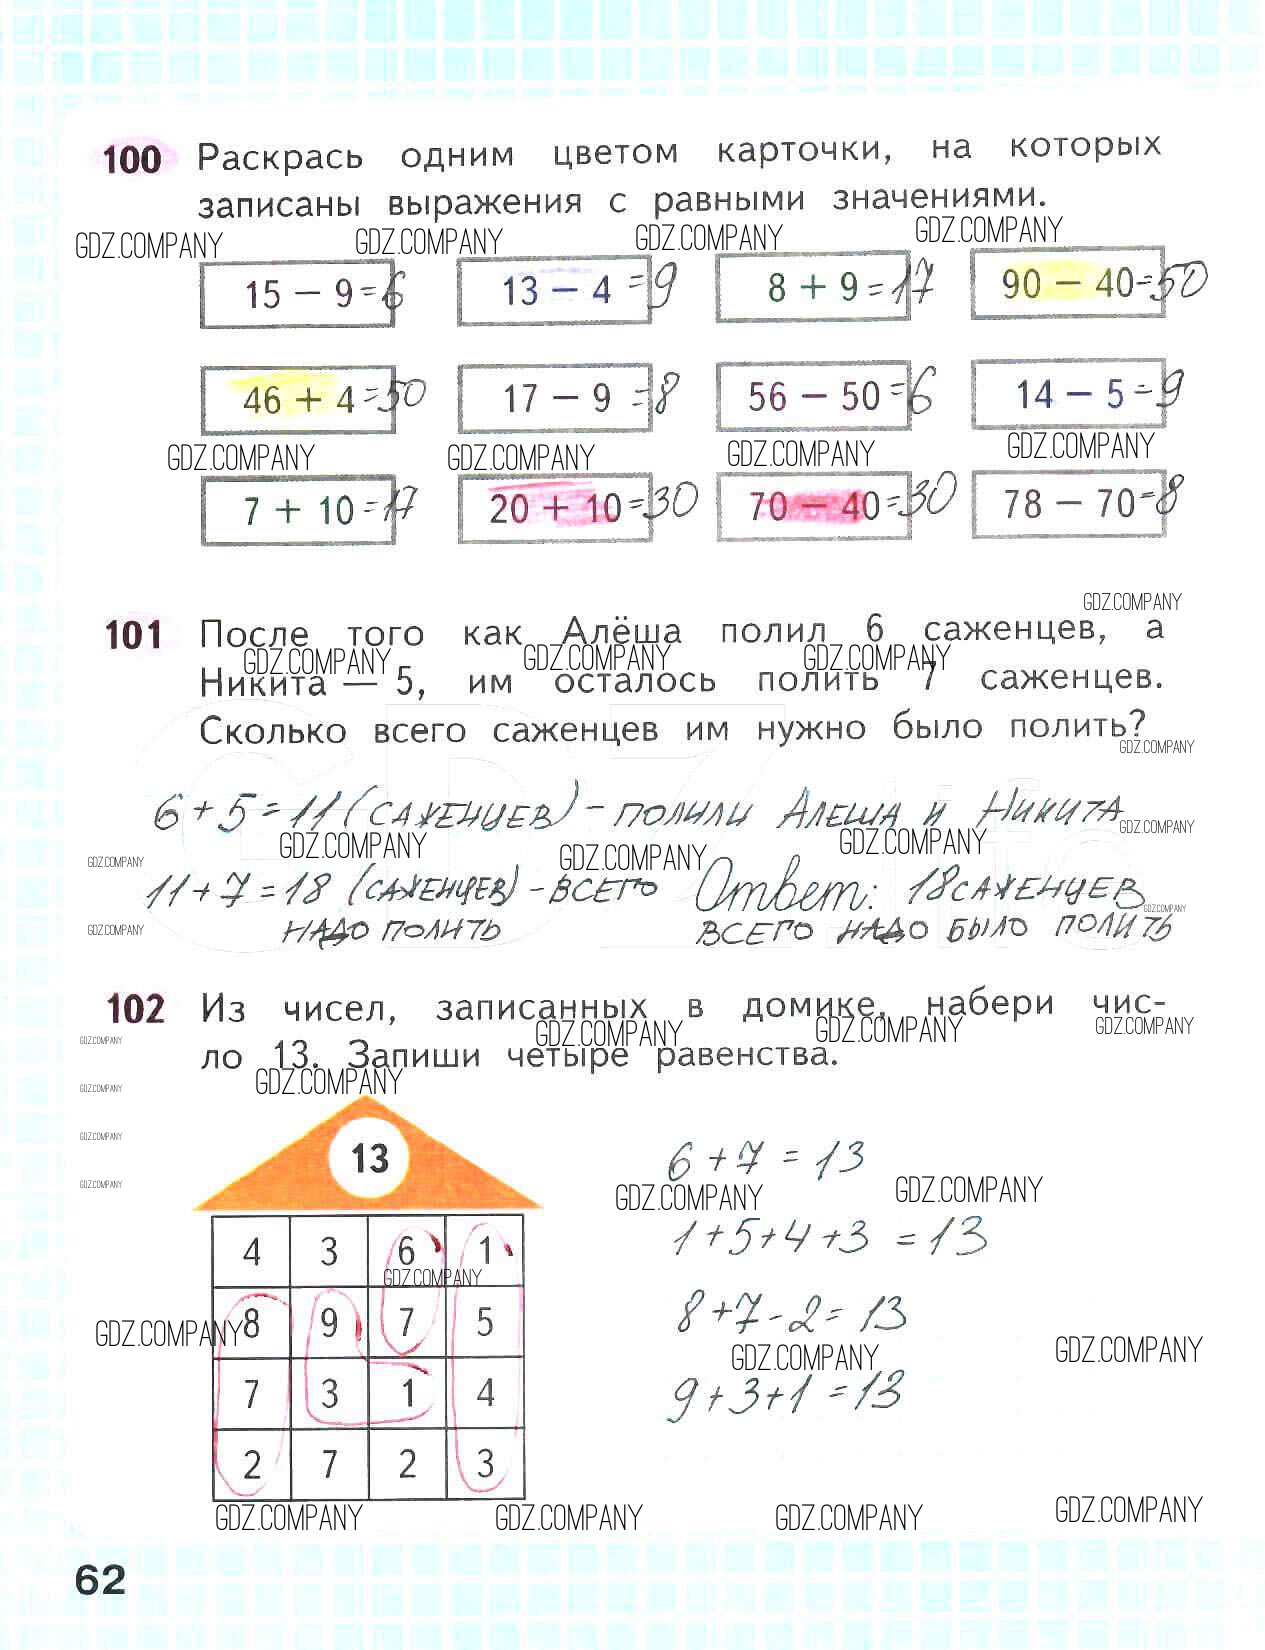 100 Раскрась одним цветом карточки, на которых
записаны выражения с равными значениями.
GDZ.COMPANY GDZ.COMPANY GDZ.COMPANY GDZ.COMPANY
15 − 9 =6 13 − 4 =9 8 + 9 =17 90 − 40=50
46 + 4 =50 17 − 9 =8 56 − 50 =6 14 − 5 =9
GDZ.COMPANY GDZ.COMPANY GDZ.COMPANY GDZ.COMPANY
7 + 10 =17 20 + 10 =30 70 − 40 =30 78 − 70 =8
GDZ.COMPANY
101 После того как Алёша полил 6 саженцев, а
GDZ.COMPANY GDZ.COMPANY GDZ.COMPANY
Никита — 5, им осталось полить 7 саженцев.
Сколько всего саженцев им нужно было полить?
GDZ.COMPANY
6 + 5 = 11 (САЖЕНЦЕВ) - ПОЛИЛИ АЛЕША И НИКИТА
GDZ.COMPANY
GDZ.COMPANY GDZ.COMPANY GDZ.COMPANY GDZ.COMPANY
11 + 7 = 18 (САЖЕНЦЕВ) - ВСЕГО Ответ: 18 САЖЕНЦЕВ
GDZ.COMPANY GDZ.COMPANY
НАДО ПОЛИТЬ ВСЕГО НАДО БЫЛО ПОЛИТЬ
102 Из чисел, записанных в домике, набери чис-
GDZ.COMPANY GDZ.COMPANY GDZ.COMPANY GDZ.COMPANY
ло 13. Запиши четыре равенства.
GDZ.COMPANY GDZ.COMPANY
GDZ.COMPANY
13 6 + 7 = 13
GDZ.COMPANY GDZ.COMPANY GDZ.COMPANY
4 3 6 1 1 + 5 + 4 + 3 = 13
GDZ.COMPANY
8 9 7 5 8 + 7 - 2 = 13
GDZ.COMPANY GDZ.COMPANY GDZ.COMPANY
7 3 1 4 9 + 3 + 1 = 13
2 7 2 3
GDZ.COMPANY GDZ.COMPANY GDZ.COMPANY GDZ.COMPANY
62